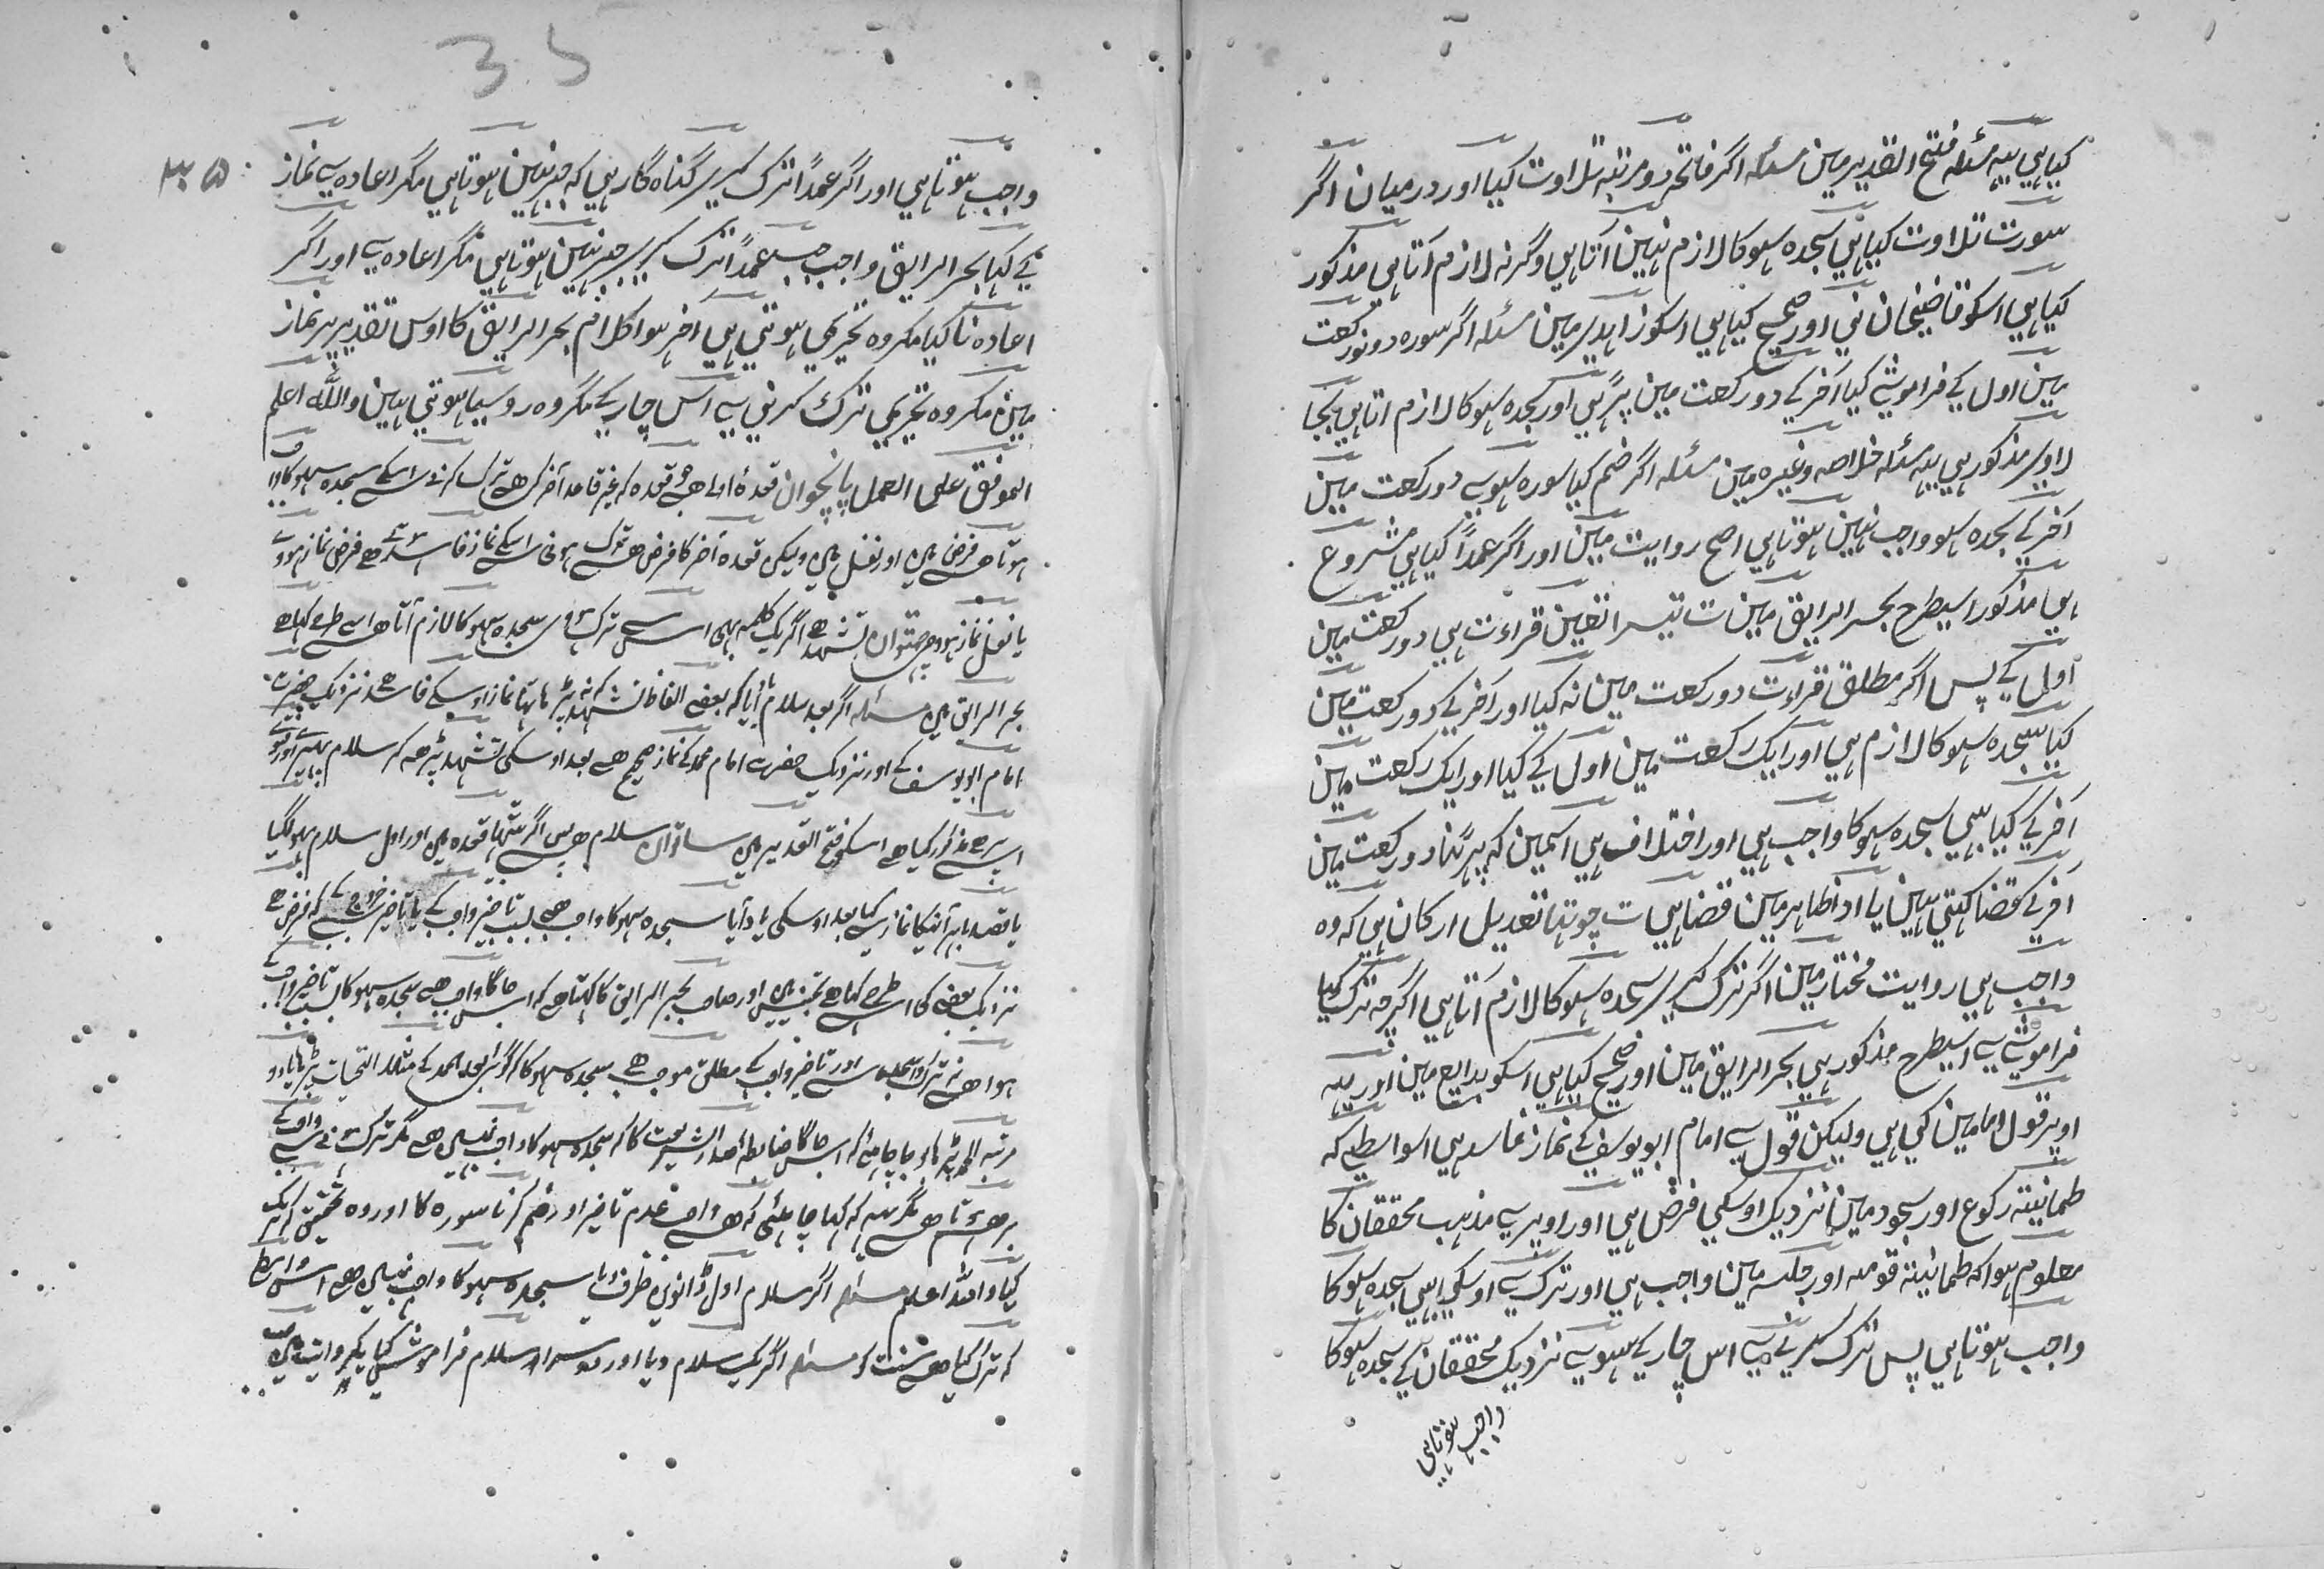 کیا ہی یہہ مسئلہ فتح القدیر مین مسئلہ اگر فاتحہ دو مرتبہ تلاوت کیا اور درمیان اگر
سورت تلاوت کیا ہی سجدہ سہو کا لازم نہین آتا ہی وگرنہ لازم آتا ہی مذکور
کیا ہی اسکو قاضیخان نی اور صحیح کیا ہی اسکو زاہدی مین مسئلہ اگر سورہ دو نو رکعت
مین اول کے فراموشی کیا آخر کے دو رکعت مین پڑہی اور سجدہ سہو کا لازم اتا ہی بجا
لاوی مذکور ہی یہہ مسئلہ خلاصہ وغیرہ مین مسئلہ اگر ضم کیا سورہ سہو سے دو رکعت مین
آخر کے سجدہ سہو واجب نہین ہوتا ہی اصح روایت مین اور اگر عمداً کیا ہی مشروع
ہی مذکور اسیطرح بحر الرایق مین ت تیسرا تعین قراءت ہی دو رکعت مین
اول کے پس اگر مطلق قراءت دو رکعت مین نہ کیا اور آخر کے دو رکعت مین
کیا سجدہ سہو کا لازم ہی اور ایک رکعت مین اول کے کیا اور ایک رکعت مین
آخر کے کیا بہی سجدہ سہو کا واجب ہی اور اختلاف ہی اسمین کہ پڑہنا دو رکعت مین
آخر کے قضا کہتی ہین یا ادا ظاہر مین قضا ہی ت چوتہا تعدیل ارکان ہی کہ وہ
واجب ہی روایت مختار مین اگر ترک کری سجدہ سہو کا لازم آتا ہی اگرچہ ترک کیا
فراموشی سے اسیطرح مذکور ہی بحر الرایق مین اور صحیح کیا ہی اسکو بدایع مین اور یہہ
اوپر قول امامین کی ہی ولیکن قول سے امام ابو یوسف کے نماز فاسد ہی اسواسطی کہ
طمانینۃ رکوع اور سجود مین نزدیک اوسکی فرض ہی اور اوپر سے مذہب محققان کا
معلوم ہوا کہ طمانینۃ قومہ اور جلسہ مین واجب ہی اور ترک سے اوسکی بہی سجدہ سہو کا
واجب ہوتا ہی پس ترک کرنے سے اس چار کے سہو سے نزدیک محققان کے سجدہ سہو کا
واجب ہوتا ہی
3 5
۳۵
واجب ہوتا ہی اور اگر عمداً ترک کری گناہ گار ہی کہ جبر نہین ہوتا ہی مگر اعادہ سے نماز
کے کہا بحر الرایق واجب جب عمداً ترک کری جبر نہین ہوتا ہی مگر اعادہ سے اور اگر
اعادہ نا کیا مکروہ تحریمی ہوتی ہی آخر ہوا کلام بحر الرایق کا اوس تقدیر پر نماز
مین مکروہ تحریمی ترک کرنی سے اس چار کے مکروہ رو سیا ہوتی ہین واللہ اعلم
الموفق علی العمل پانچوان قعدۂ اولے ہے قعدہ کہ غیر قاعدہ آخر کی ہے ترک کرنے اسکے سجدہ سہو کا
ہوتا ہے فرض مین اور نفل مین ولیکن قعدہ آخر کا فرض ہے ترک ہونی اسکے نماز فاسد ہوتے ہے فرض نماز ہووے
یا نفل نماز ہووے چہٹوان تشہد ہے اگر یک کلمہ بہی اس سے ترک سجدہ سہو کا لازم آتا ہے اسے طرح کہا ہے
بحر الرایق مین مسئلہ اگر بعد سلام یاد آیا کہ بعضے الفاظ تشہد کے نہ پڑھا تہا نماز اوسکے فاسد ہے نزدیک حضرت
امام ابو یوسف کے اور نزدیک حضرت امام محمد کے نماز صحیح ہے بعد اوسکی تشہد پڑھہ کر سلام پہیرے
مذکور کیا ہے اسکو فتح القدیر مین ساتوان سلام ہے پس اگر قعدہ مین اور اول سلام بہولگیا
یا قصد باہر آنیکا نماز سے کیا بعد اوسکی یاد آیا سجدہ سہو کا واجب ہے بسبب تاخیر واجب کے یا تاخیر خروج کے کہ فرض ہے
نزدیک بعضے کا اسے طرح کہا ہے اور صاحب بحر الرایق کا کہتا ہے کہ اس جاگا واجب ہے سجدہ سہو کا بسبب تاخیر واجب کے
ہوا ہے نہ ترک واجب سے اور تاخیر واجب کے مطلق موجب ہے سجدہ سہو کا کوئی بعد الحمد کے مثلا التحیات پڑھا یا دو
مرتبہ الحمد پڑھا جانا چاہئے کہ اس جاگا ضابطہ صدر الشریعت کا کہ سجدہ سہو کا واجب نہین ہے مگر ترک سے واجب کے
مگر یہہ کہ کہا چاہئے کہ ہے واجب عدم تاخیر اور ضم کرنا سورہ کا اور وہ تحقیق کہ ترک
کیا واللہ اعلم مسئلہ اگر سلام اول طرف دیا سجدہ سہو کا واجب نہین ہے اس واسطے
کہ ترک کیا ہے سنت کو مسئلہ اگر یک سلام دیا اور دوسرا سلام فراموش کیا یک روایت مین